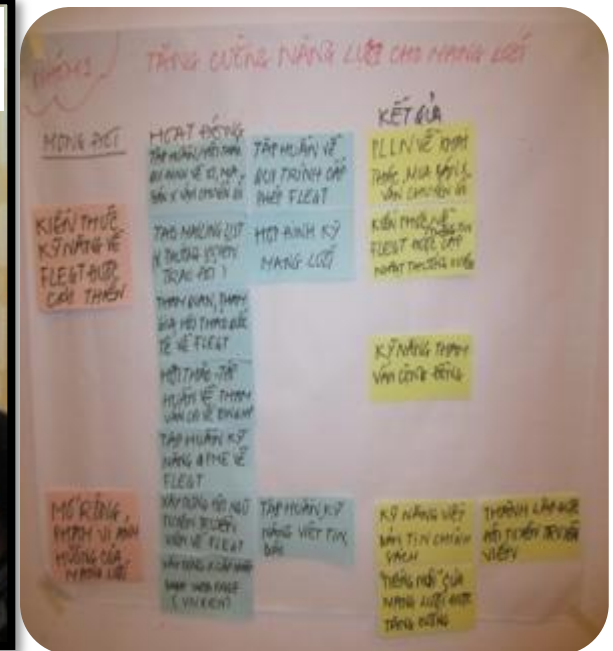 NHÓM 1
TĂNG CƯỜNG NĂNG LỰC CHO MẠNG LƯỚI
MONG ĐỢI
HOẠT ĐỘNG
KẾT QUẢ
KIẾN THỨC
KỸ NĂNG VỀ
FLEGT ĐƯỢC
CẢI THIỆN
MỞ RỘNG
PHẠM VI ẢNH
HƯỞNG CỦA
MẠNG LƯỚI
TẬP HUẤN
VẬN CHUYỂN
TẠO MAILING LIST
THAM QUAN, THAM
GIA HỘI THẢO QUỐC
TẾ VỀ FLEGT
HỘI THẢO - TẬP
HUẤN VỀ THAM
VẤN
TẬP HUẤN KỸ
NĂNG VỀ
FLEGT
XÂY DỰNG ĐỘI NGŨ
TUYÊN TRUYỀN
VIÊN VỀ FLEGT
XÂY DỰNG
WEB PAGE
TẬP HUẤN VỀ
QUI TRÌNH CẤP
PHÉP FLEGT
HỌP ĐỊNH KỲ
MẠNG LƯỚI
TẬP HUẤN KỸ
NĂNG VIẾT TIN,
BÀI
PLLN VỀ KHAI
THÁC, MUA BÁN,
VẬN CHUYỂN
KIẾN THỨC VỀ
FLEGT ĐƯỢC CẬP
NHẬT THƯỜNG XUYÊN
KỸ NĂNG THAM
VẤN CỘNG ĐỒNG
KỸ NĂNG VIẾT
BẢN TIN CHÍNH
SÁCH
"TIẾNG NÓI" CỦA
MẠNG LƯỚI ĐƯỢC
TĂNG CƯỜNG
THÀNH LẬP ĐƯỢC
ĐỘI TUYÊN TRUYỀN
VIÊN